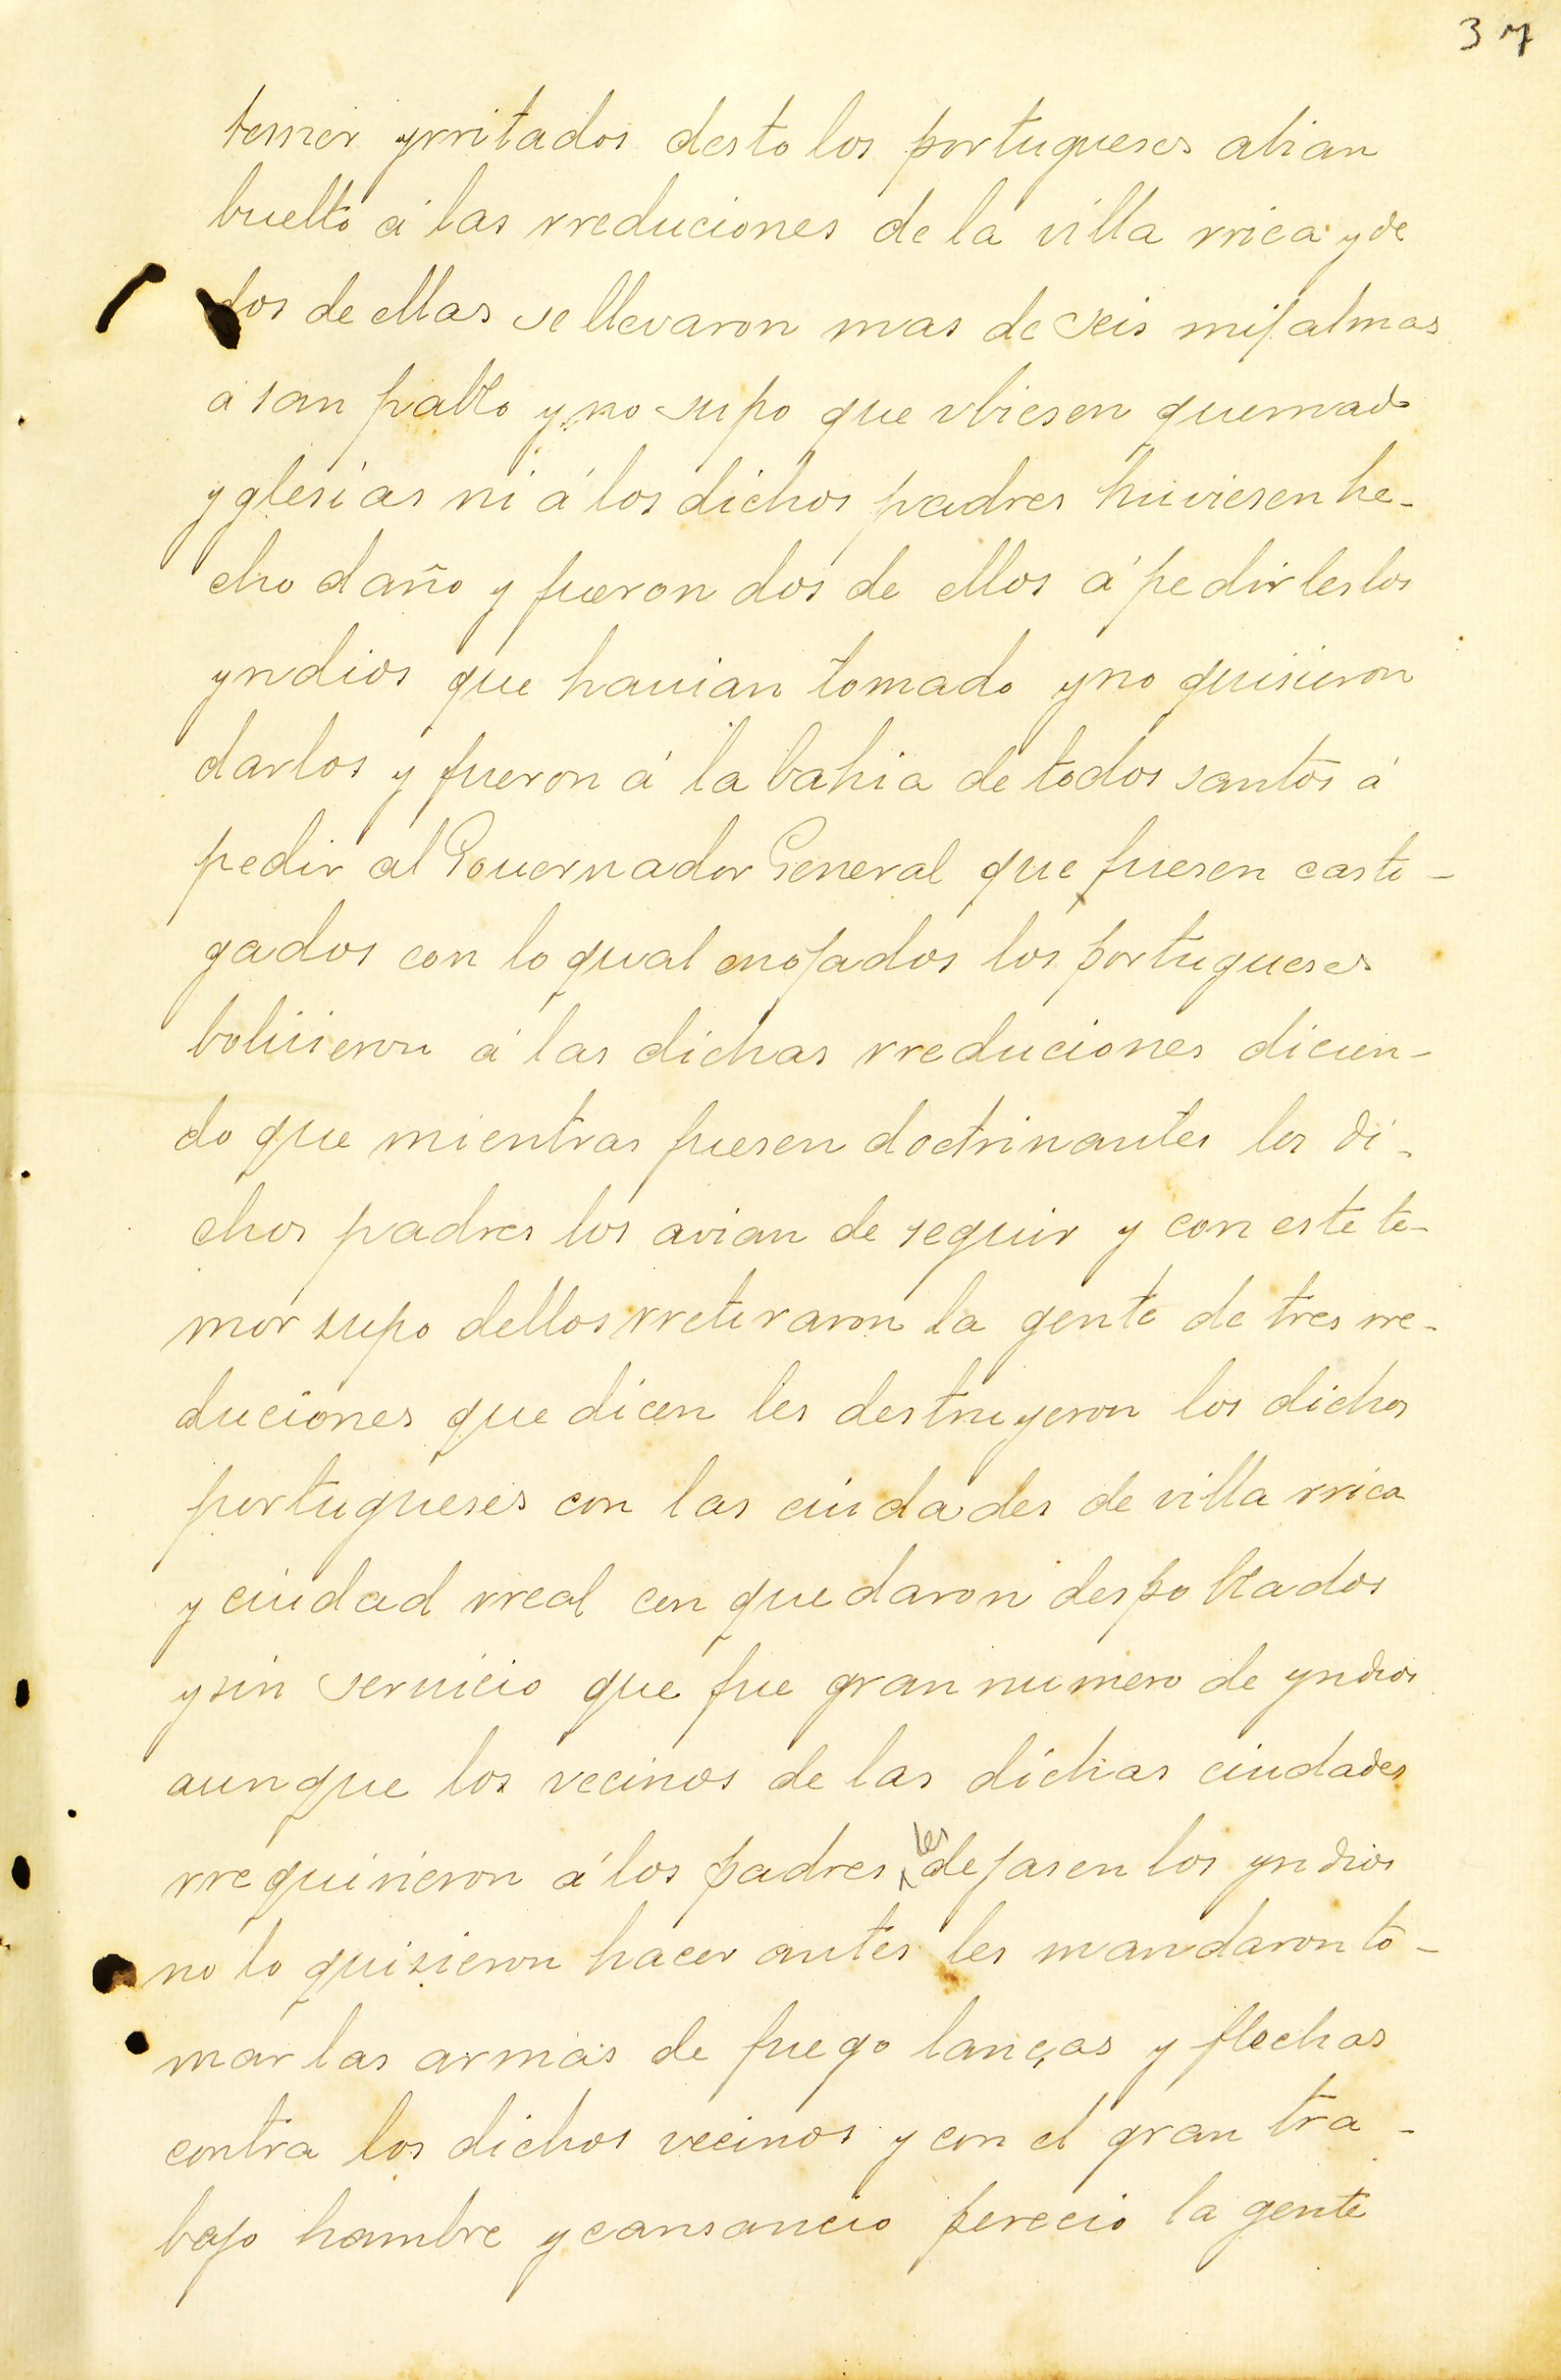 37
temer yrritados desto los portugueses abian
buelto á las rreduciones de la villa rrica y de
dos de ellas se llevaron mas de seis mil almas
á san pablo y no supo que vbiesen quemado
yglesias ni á los dichos padres huviesen he-
cho daño y fueron dos de ellos á pedirles los
yndios que hauian tomado y no quisieron
darlos y fueron á la bahia de todos santos á
pedir al Gouernador General que fuesen casti-
gados con lo qual enojados los portugueses
boluieron á las dichas rreduciones dicien-
do que mientras fuesen doctrinantes los di-
chos padres los avian de seguir y con este te-
mor supo dellos rretiraron la gente de tres rre-
duciones que dicen les destruyeron los dichos
portugueses con las ciudades de villa rrica
y ciudad rreal con que daron despoblados
y sin seruicio que fue gran numero de yndios
aunque los vecinos de las dichas ciudades
rrequirieron á los padres les dejasen los yndios
no lo quisieron hacer antes les mandaron to-
mar las armas de fuego lanças y flechas
contra los dichos vecinos y con el gran tra-
bajo hambre y cansancio perecio la gente